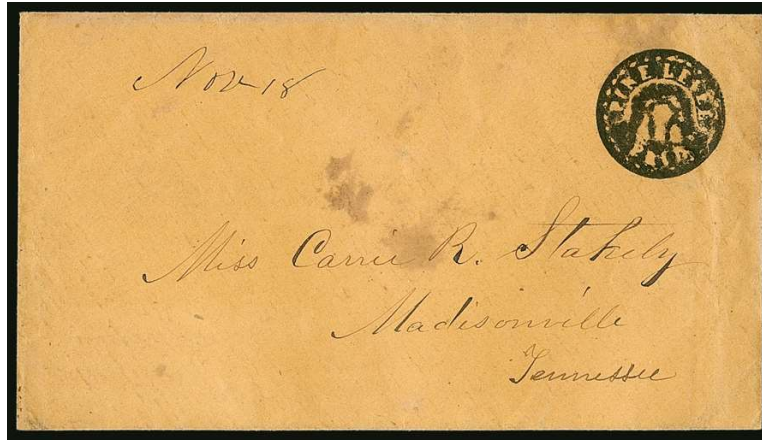 Nov 18
PINE LEVEL
PAID
Miss Carrie R. Stakely
Madisonville
Tennessee